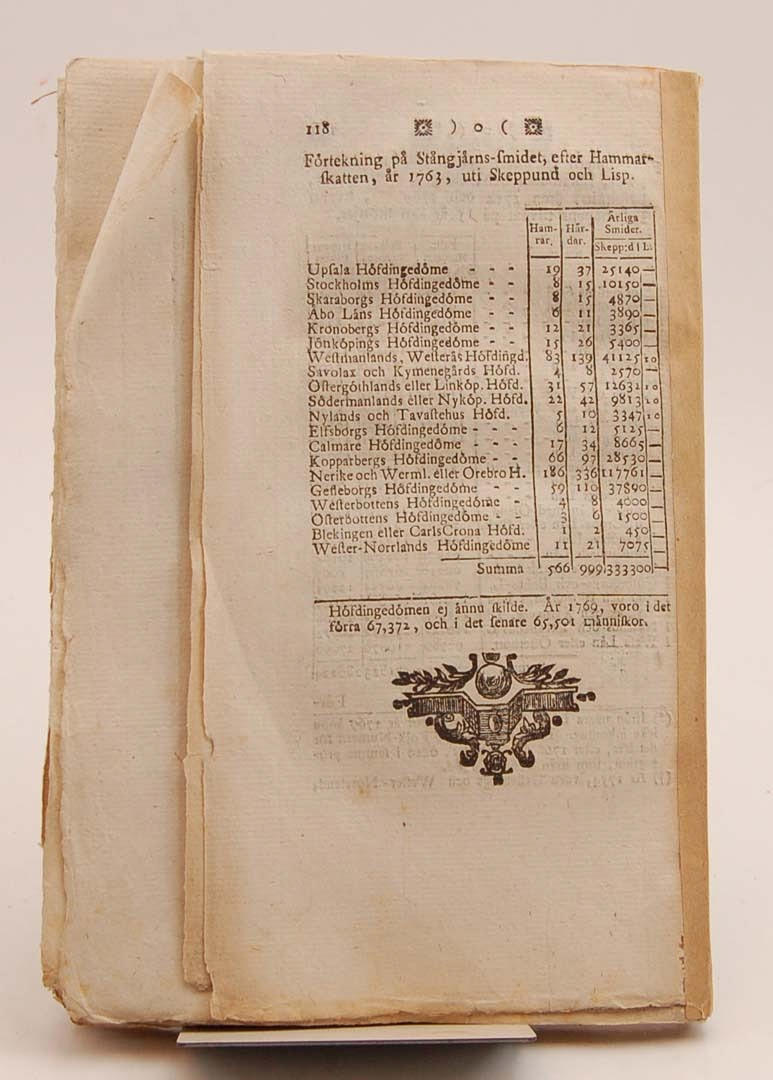 118 ) o (
Förtekning på Stångjårns-smidet, efter Hammar-
skatten, år 1763, uti Skeppund och Lisp.
Ham- Här- Årliga
rar. dar. Smider.
Skepp:d L.
Upsala Höfdingedöme - - - 19 37 25140 —
Stockholms Höfdingedöme - - 8 15 10150 —
Skaraborgs Höfdingedöme - - 8 15 4870 —
Åbo Läns Höfdingedöme - - 6 11 3890 —
Kronobergs Höfdingedöme - - 12 21 3365 —
Jönköpings Höfdingedöme - - 15 26 5400 —
Westmanlands, Westerås Höfdingd. 83 139 41125 10
Savolax och Kymenegårds Höfd. 4 8 2570 —
Östergöthlands eller Linköp. Höfd. 31 57 12632 10
Södermanlands eller Nyköp. Höfd. 22 42 9813 10
Nylands och Tavastehus Höfd. 5 10 3347 10
Elfsborgs Höfdingedöme - - - 6 12 5125 —
Calmare Höfdingedöme - - - 17 34 8665 —
Kopparbergs Höfdingedöme - - 66 97 28530 —
Nerike och Werml. eller Örebro H. 186 336 117761 —
Gefleborgs Höfdingedöme - - 59 110 37890 —
Westerbottens Höfdingedöme - 4 8 4000 —
Österbottens Höfdingedöme - - 3 6 1500 —
Blekingen eller CarlsCrona Höfd. 1 2 450 —
Wester-Norrlands Höfdingedöme 11 21 7075 —
Summa 566 999 333300 —
Höfdingedömen ej ännu skilde. År 1769, voro i det
förra 67,372, och i det senare 65,501 människor.